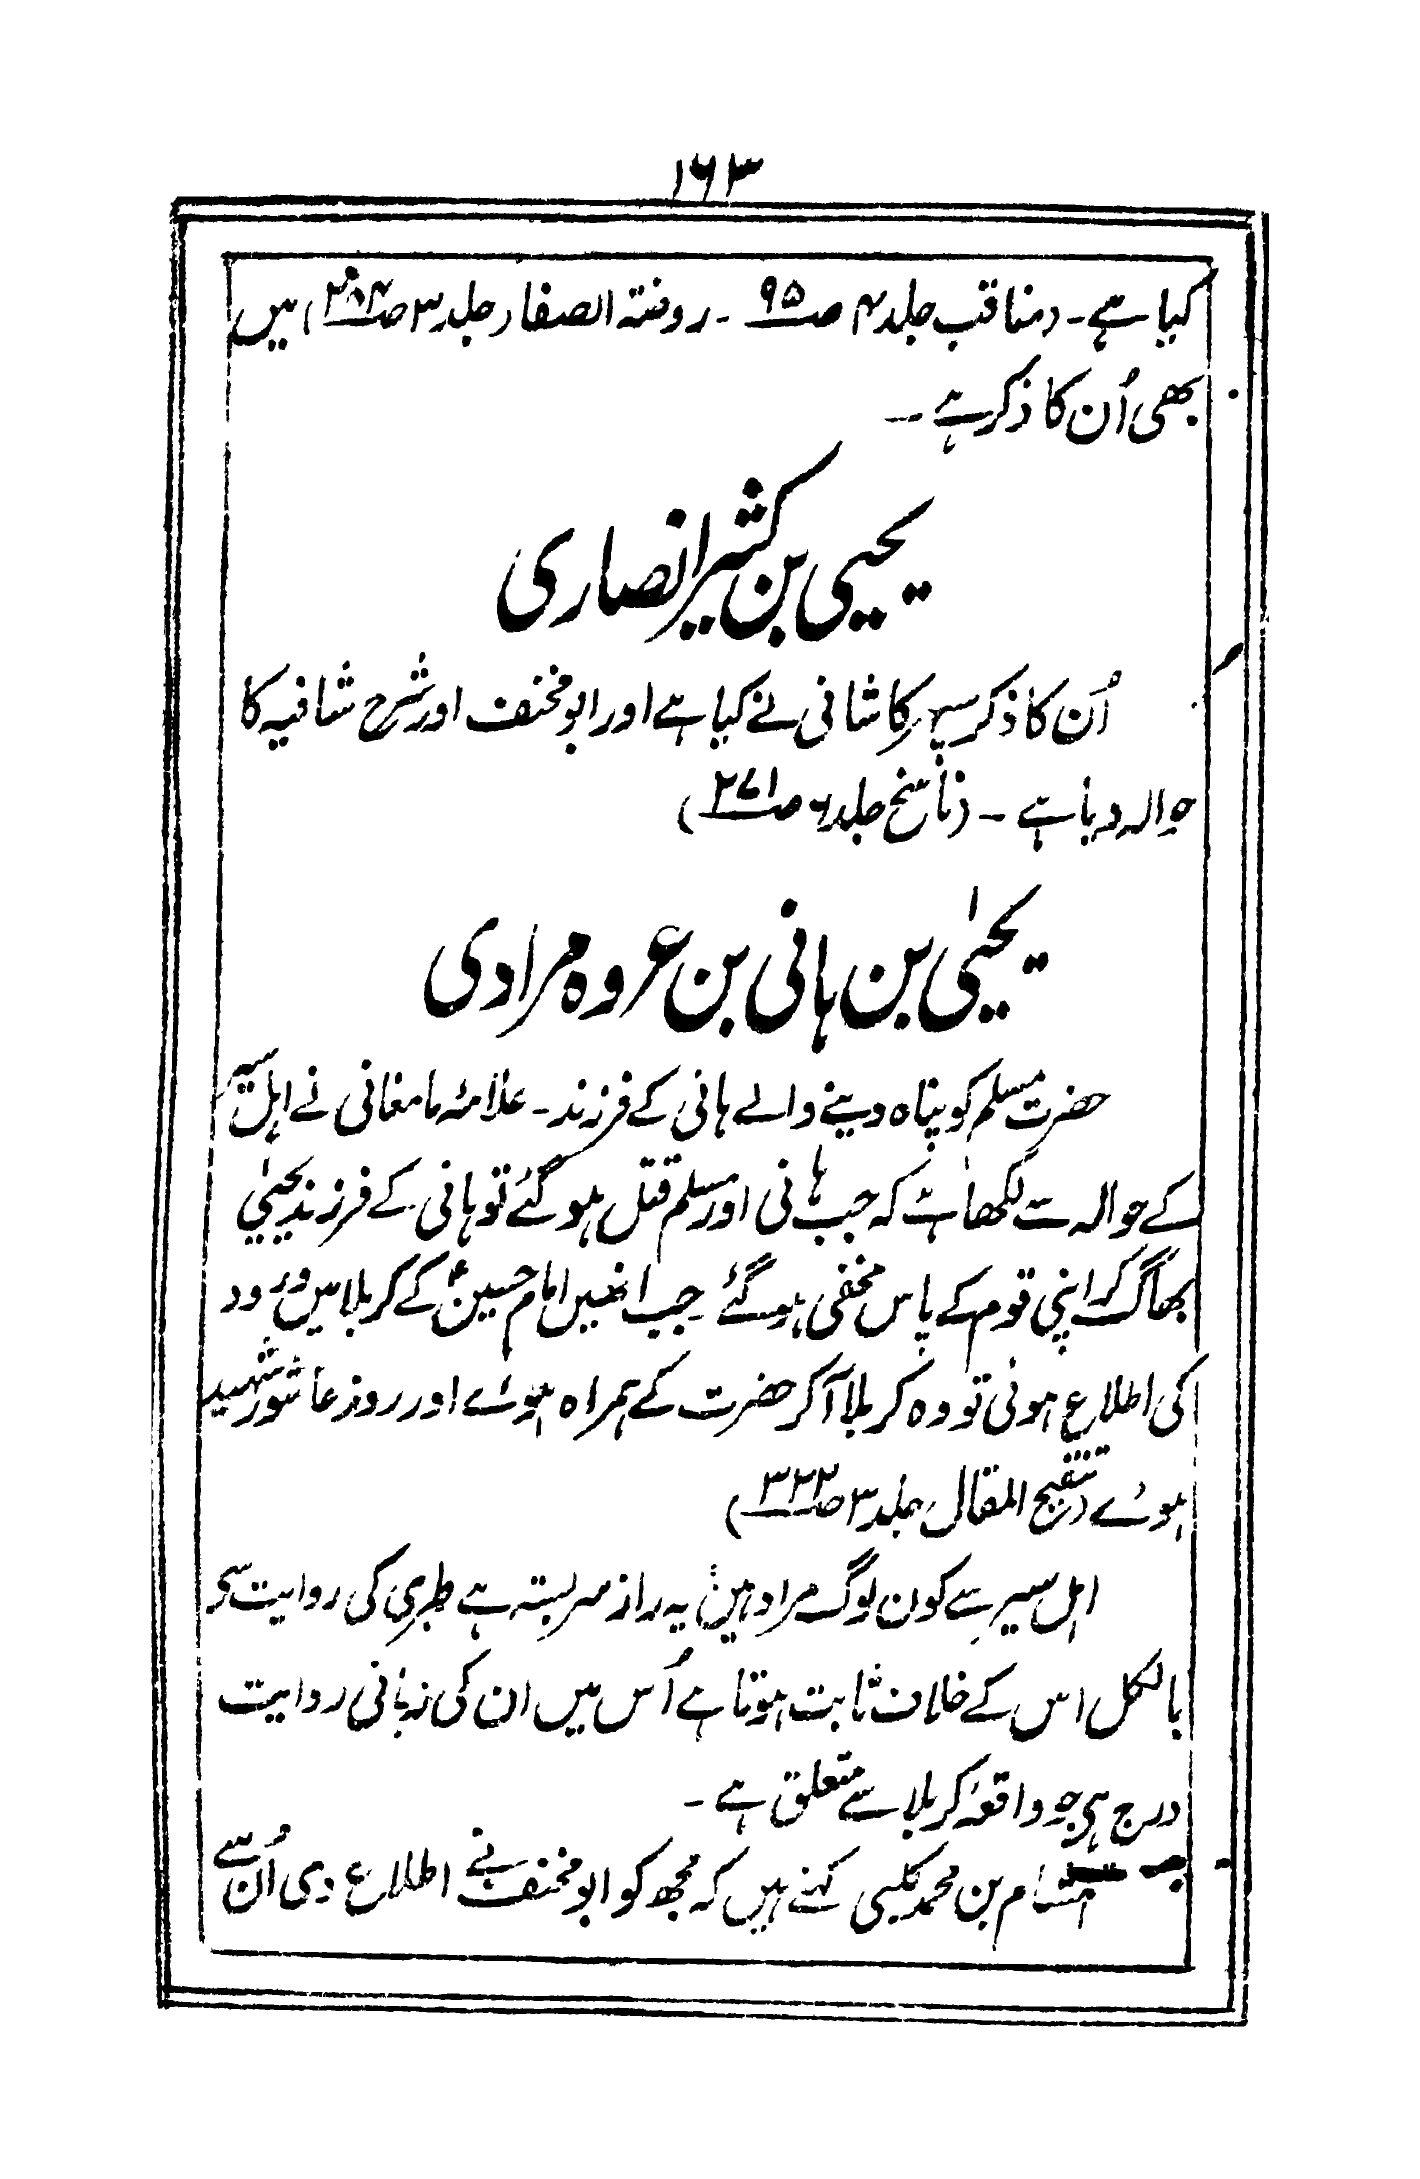 ۱۶۳
کیا ہے۔ (مناقب جلد ۴ ص۹۵ ۔ روضتہ الصفار جلد ۳ ص) میں
بھی اُن کا ذکر ہے ۔۔
یحییٰ بن کثیر انصاری
اُن کا ذکر سپہر کاشانی نے کیا ہے اور ابو مخنف اور شرح شافیہ کا
حوالہ دیا ہے ۔ (ناسخ جلد ۶ ص۲۷۱)
یحیٰی بن ہانی بن عروہ مرادی
حضرت مسلم کو پناہ دینے والے ہانی کے فرزند۔ علامۂ مامغانی نے اہل سیر
کے حوالہ سے لکھا ہے کہ جب ہانی اور مسلم قتل ہو گئے تو ہانی کے فرزند یحییٰ
بھاگ کر اپنی قوم کے پاس مخفی ہو گئے۔ جب انھیں امام حسینؑ کے کربلا میں ورود
کی اطلاع ہوئی تو وہ کربلا آکر حضرت کے ہمراہ ہوئے اور روز عاشور شہید
ہوئے (تنقیح المقال جلد ۳ ص۳۲۳)
اہل سیر سے کون لوگ مراد ہیں یہ راز سربستہ ہے طبری کی روایت سے
بالکل اس کے خلاف ثابت ہوتا ہے اُس میں ان کی زبانی روایت
درج ہی جو واقعۂ کربلا سے متعلق ہے ۔
ہشام بن محمد کلبی کہتے ہیں کہ مجھ کو ابو مخنف نے اطلاع دی اُن سے